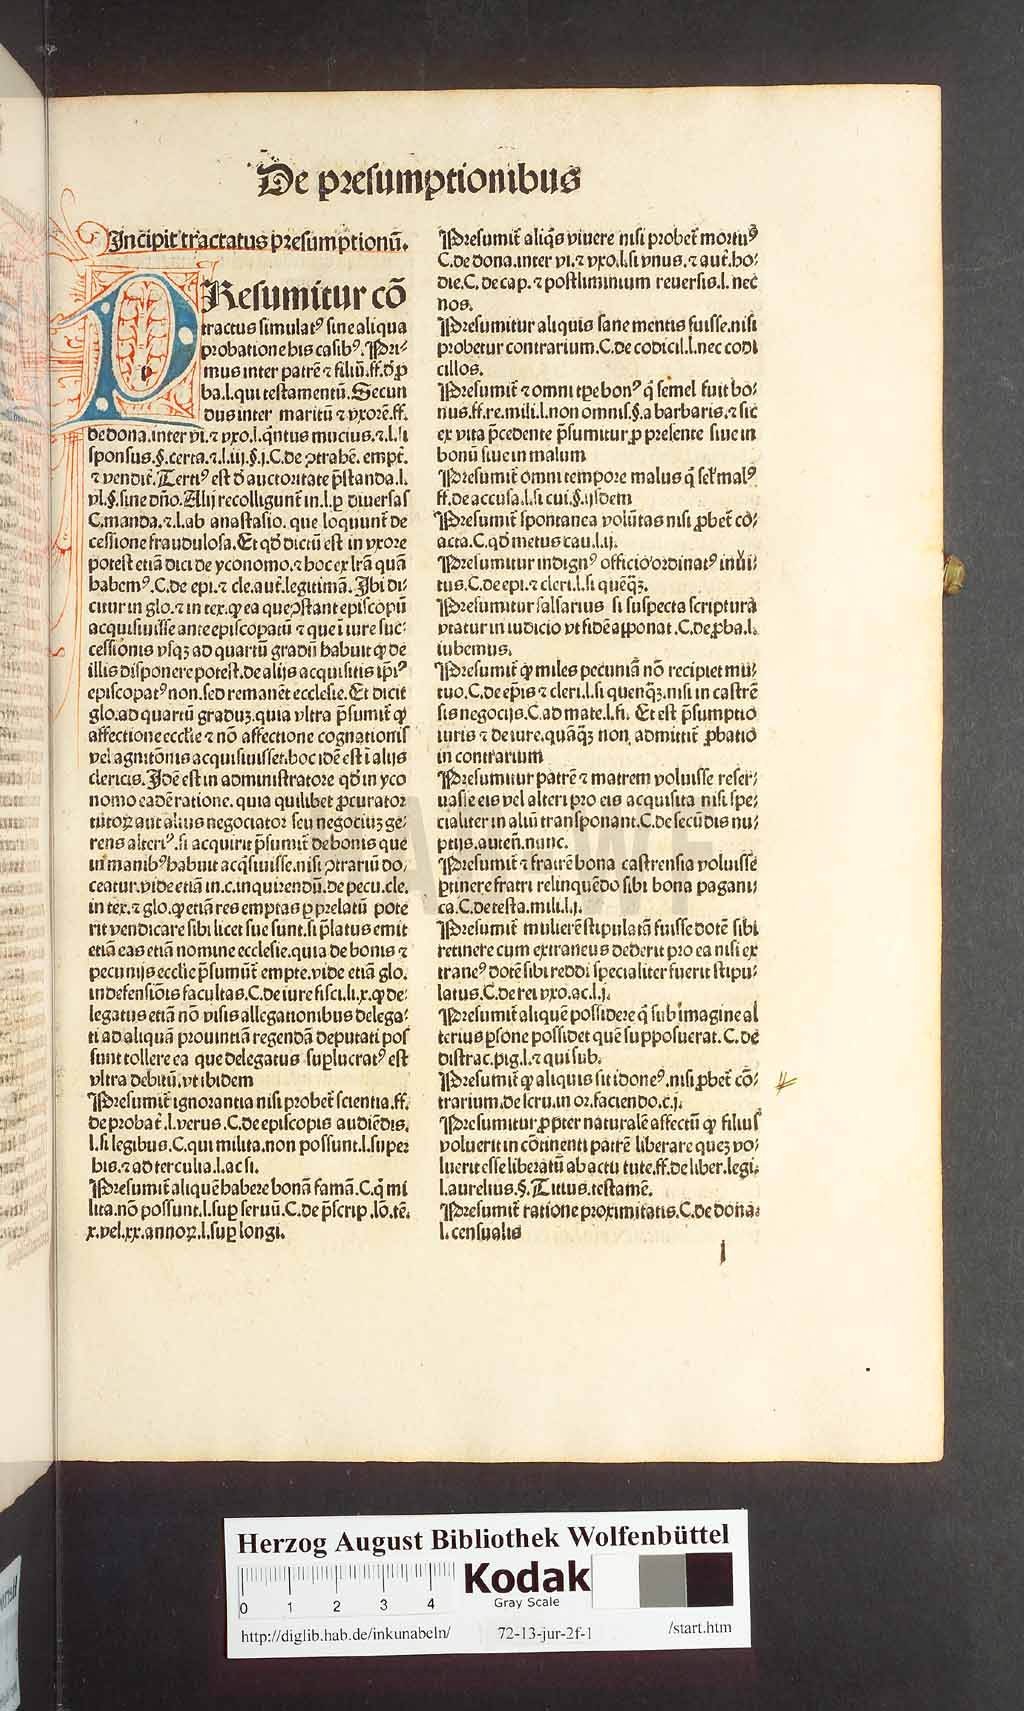 De presumptionibus
Incipit tractatus presumptionū.
PResumitur cō
tractus simulatꝰ sine aliqua
probatione his casibꝰ. Pri⸗
mus inter patrē ⁊ filiū. ff. đ ꝓ
ba. l. qui testamentū. Secun
dus inter maritū ⁊ vxorē. ff.
de dona. inter vi. ⁊ vxo. l. q̄ntus mucius. ⁊. l. si
sponsus. §. certa. ⁊. l. iij. §. j. C. de ꝯtrahē. empt̄.
⁊ vendit̄. Tertiꝰ est đ auctoritate p̄standa. l.
vl. §. sine dño. Alij recolligunt̄ in. l. ꝑ diuersas
C. manda. ⁊. l. ab anastasio. que loquunt̄ de
cessione fraudulosa. Et qđ dictū est in vxore
potest etiā dici de yconomo. ⁊ hoc ex lr̄a quā
habemꝰ. C. de epi. ⁊ cle. aut̄. legitimā. Ibi di⸗
citur in glo. ⁊ in tex. ꝙ ea que ꝯstant episcopū
acquisiuisse ante episcopatū ⁊ que ī iure suc⸗
cessionis vsqꝫ ad quartū gradū habuit ꝙ de
illis disponere potest. de alijs acquisitis ip̄iꝰ
episcopatꝰ non. sed remanēt ecclesie. Et dicit
glo. ad quartū graduꝫ. quia vltra p̄sumit̄ ꝙ
affectione ecclīe ⁊ nō affectione cognationis
vel agnitōnis acquisiuisset. hoc idē est ī alijs
clericis. Idē est in administratore qđ in yco
nomo eadē ratione. quia quilibet ꝓcurator
tutor aut alius negociator seu negociuꝫ ge⸗
rens alteriꝰ. si acquirit p̄sumit̄ de bonis que
in manibꝰ habuit acq̄siuisse. nisi ꝯtrariū do⸗
ceatur. vide etiā in. c. inquirendū. de pecu. cle.
in tex. ⁊ glo. ꝙ etiā res emptas ꝑ prelatū pote
rit vendicare sibi licet sue sunt. si p̄latus emit
etiā eas etiā nomine ecclesie. quia de bonis ⁊
pecunijs ecclīe p̄sumūt̄ empte. vide etiā glo.
in defensiōis facultas. C. de iure fisci. li. x. ꝙ de⸗
legatus etiā nō visis allegationibus delega⸗
ti ad aliquā prouintiā regendā deputati pos
sunt tollere ea que delegatus suꝑlucratꝰ est
vltra debitū. vt ibidem
Presumit̄ ignorantia nisi probet̄ scientia. ff.
de probat̄. l. verus. C. de episcopis audiēdis.
l. si legibus. C. qui milita. non possunt. l. super
his. ⁊ ad tercul̄ia. l. ac si.
Presumit̄ aliquē habere bonā famā. C. q̄ mi
lita. nō possunt. l. suꝑ seruū. C. de p̄scrip. lō. tē.
x. vel. xx. annoꝝ. l. suꝑ longi.
Presumit̄ aliq̄s viuere nisi probet̄ mortuꝰ
C. de dona. inter vi. ⁊ vxo. l. si vnus. ⁊ aut̄. ho⸗
die. C. de cap. ⁊ postliminium reuersis. l. nec
nos.
Presumitur aliquis sane mentis fuisse. nisi
probetur contrarium. C. de codicil. l. nec codi
cillos.
Presumit̄ ⁊ omni tꝑe bonꝰ q̄ semel fuit bo⸗
nus. ff. re. mili. l. non omnis. §. a barbaris. ⁊ sic
ex vita p̄cedente p̄sumitur ꝓ presente siue in
bonū siue in malum
Presumit̄ omni tempore malus q̄ sel̄ malꝰ
ff. de accusa. l. si cui. §. ijsdem
Presumit̄ spontanea volūtas nisi ꝓbet̄ co⸗
acta. C. qđ metus cau. l. ij.
Presumitur indignꝰ officio ordinatꝰ inui⸗
tus. C. de epi. ⁊ cleri. l. si quēq̄ꝫ.
Presumitur falsarius si suspecta scriptura
vtatur in iudicio vt fidē apponat. C. de ꝓba. l.
iubemus.
Presumit̄ ꝙ miles pecuniā nō recipiet mu⸗
tuo. C. de ep̄is ⁊ cleri. l. si quenq̄ꝫ. nisi in castrē
sis negocijs. C. ad mate. l. fi. Et est p̄sumptio
iuris ⁊ de iure. quāq̄ꝫ non admittit̄ ꝓbatio
in contrarium
Presumitur patrē ⁊ matrem voluisse reser⸗
uasse eis vel alteri pro eis acquisita nisi spe⸗
cialiter in aliū transponant. C. de secūdis nu⸗
ptijs. auten̄. nunc.
Presumit̄ ⁊ fratrē bona castrensia voluisse
ꝑtinere fratri relinquēdo sibi bona pagani⸗
ca. C. de testa. mili. l. j.
Presumit̄ mulierē stipulatā fuisse dotē sibi
retinere cum extraneus dederit pro ea nisi ex
tranꝰ dotē sibi reddi specialiter fuerit stipu⸗
latus. C. de rei vxo. ac. l. j.
Presumit̄ aliquē possidere q̄ sub imagine al
terius ꝑsone possidet quē supposuerat. C. de
distrac. pig. l. ⁊ qui sub.
Presumit̄ ꝙ aliquis sit idoneꝰ. nisi ꝓbet̄ cō⸗
trarium. de scru. in or. faciendo. c. j.
Presumitur ꝓpter naturalē affectū ꝙ filius
voluerit in cōtinenti patrē liberare queꝫ vo⸗
luerit esse liberatū ab actu tute. ff. de liber. legi.
l. aurelius. §. Titius. testamē.
Presumit̄ ratione proximitatis. C. de dona.
l. censualis
j
Herzog August Bibliothek Wolfenbüttel
0 1 2 3 4
Kodak
Gray Scale
http://diglib.hab.de/inkunabeln/ 72-13-jur-2f-1 /start.htm
HAB-WF